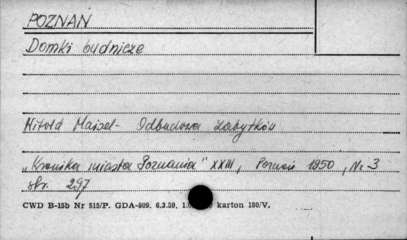 POZNAŃ
Domki budnicze
Witold Maisel - Odbudowa Zabytków
"Kronika miasta Poznania" XXIII, Poznań 1950, Nr 3
str. 297
CWD B-15b Nr 515/P. GDA-809. 6.3.59, 1.0 karton 180/V.